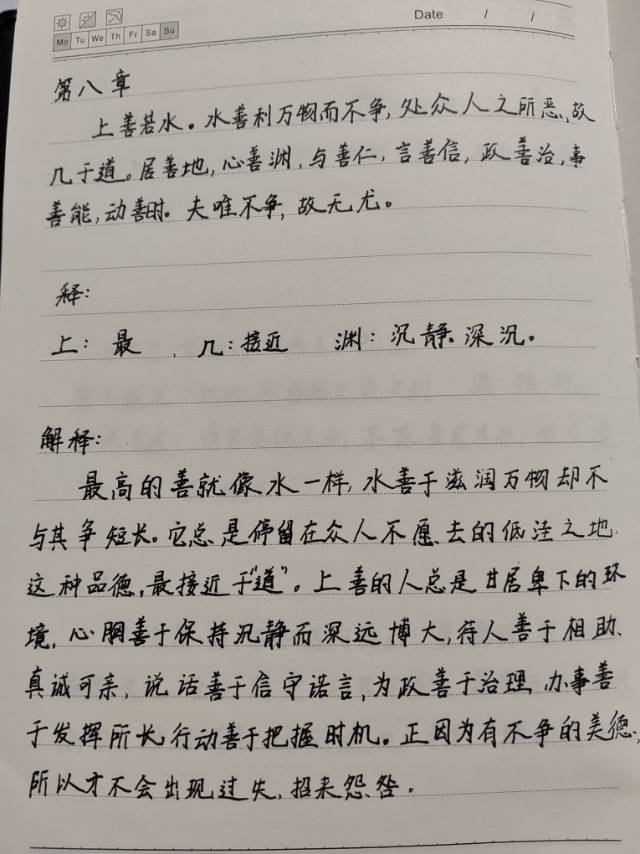 Date / /
Mo Tu We Th Fr Sa Su
第八章
上善若水。水善利万物而不争,处众人之所恶,故
几于道。居善地,心善渊,与善仁,言善信,政善治,事
善能,动善时。夫唯不争,故无尤。
释:
上:最 ,几:接近 渊:沉静、深沉。
解释:
最高的善就像水一样,水善于滋润万物却不
与其争短长。它总是停留在众人不愿去的低洼之地,
这种品德,最接近于“道”。上善的人总是甘居卑下的环
境,心胸善于保持沉静而深远博大,待人善于相助、
真诚可亲,说话善于信守诺言,为政善于治理,办事善
于发挥所长,行动善于把握时机。正因为有不争的美德,
所以才不会出现过失,招来怨咎。